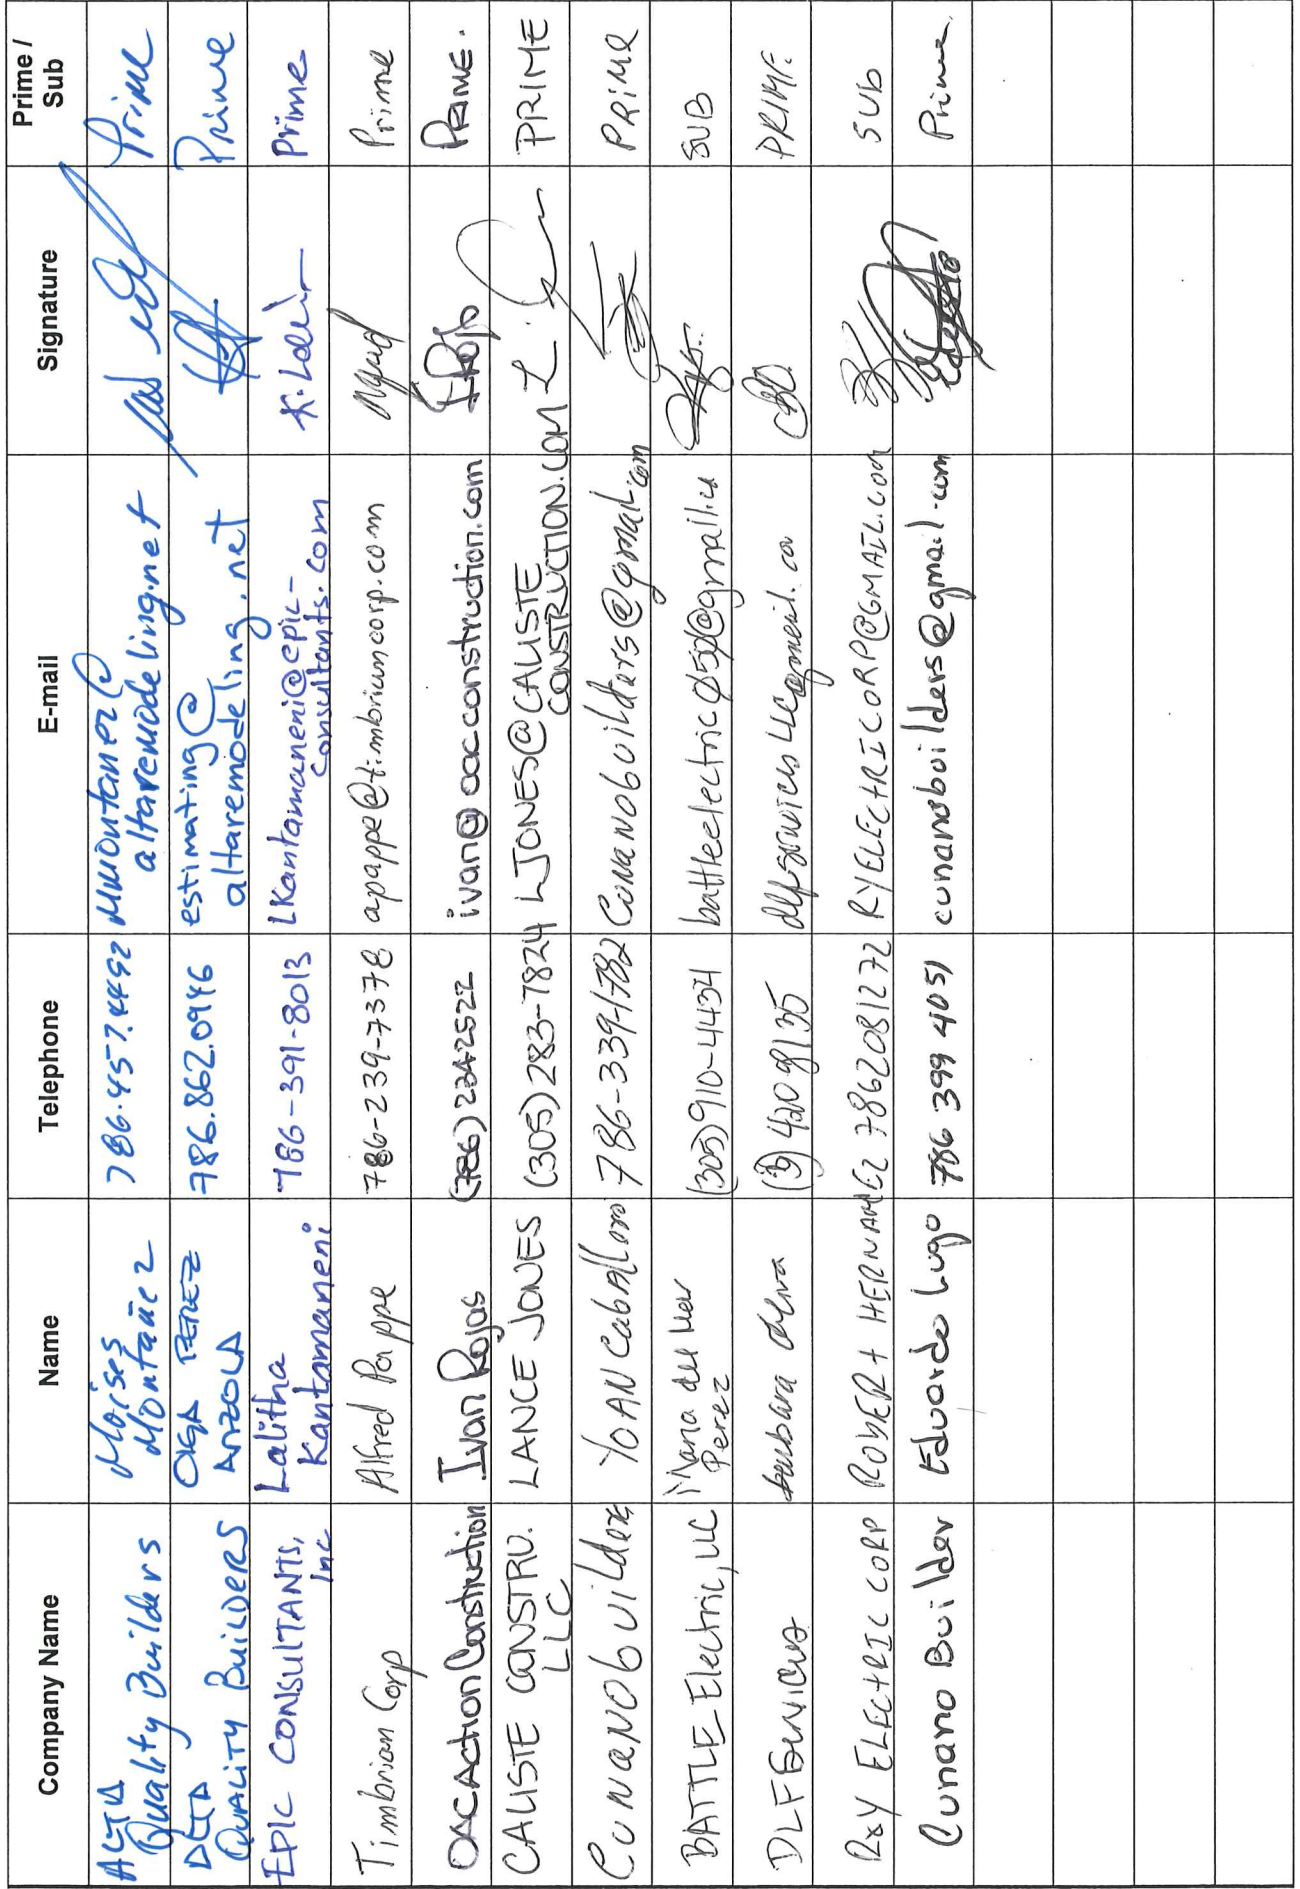 Company Name Name Telephone E-mail Signature Prime / Sub
ALTA Quality Builders Moises Montañez 786.457.4492 mmontanez@ altaremodeling.net Prime
QUALITY BUILDERS OLGA PEREZ ANZOLA 786.862.0946 estimating@ altaremodeling.net Prime
EPIC CONSULTANTS, Inc Lalitha Kantamaneni 786-391-8013 LKantamaneni@epic- consultants.com K. Prime
Timbrian Corp Alfred Pappe 786-239-7378 apappe@timbriancorp.com Prime
OAC Action Construction Ivan Rojas (786) ivan@oacconstruction.com PRIME.
CALISTE CONSTRU. LLC LANCE JONES (305) 283-7824 LJONES@CALISTE CONSTRUCTION.COM L. PRIME
Cunanobuilders YOAN CabAllero 786-339-1782 Cunanobuilders@gmail.com PRIME
BATTLE Electric, LLC Perez (305) 910-4434 SUB
DLF Services barbara PRIME
RxY ELECTRIC CORP ROBERt HERNANEZ 7862081272 RYELECTRICORP@GMAIL.com SUb
Cunano Builder Eduardo Lugo 786 399 4051 cunanobuilders@gmail.com Prime